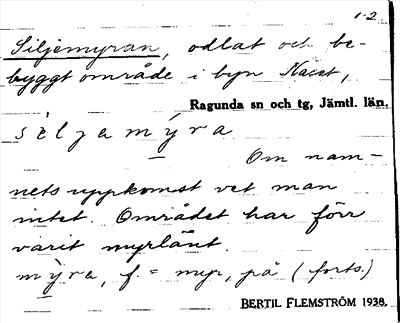 1-2
Siljemyran, odlat och be-
byggt område i byn Näset,
Ragunda sn och tg, Jämtl. län.
sìljamýra
Om nam-
nets uppkomst vet man
intet. Området har förr
varit myrlänt.
mỳra, f. = myr, på (forts.)
BERTIL FLEMSTRÖM 1938.